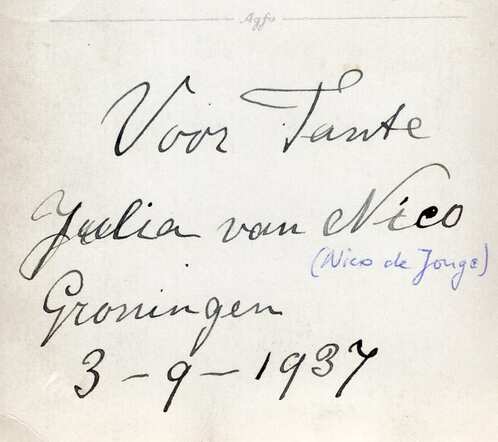 Agfa
Voor Tante
Julia van Nico
(Nico de Jonge)
Groningen
3-9-1937